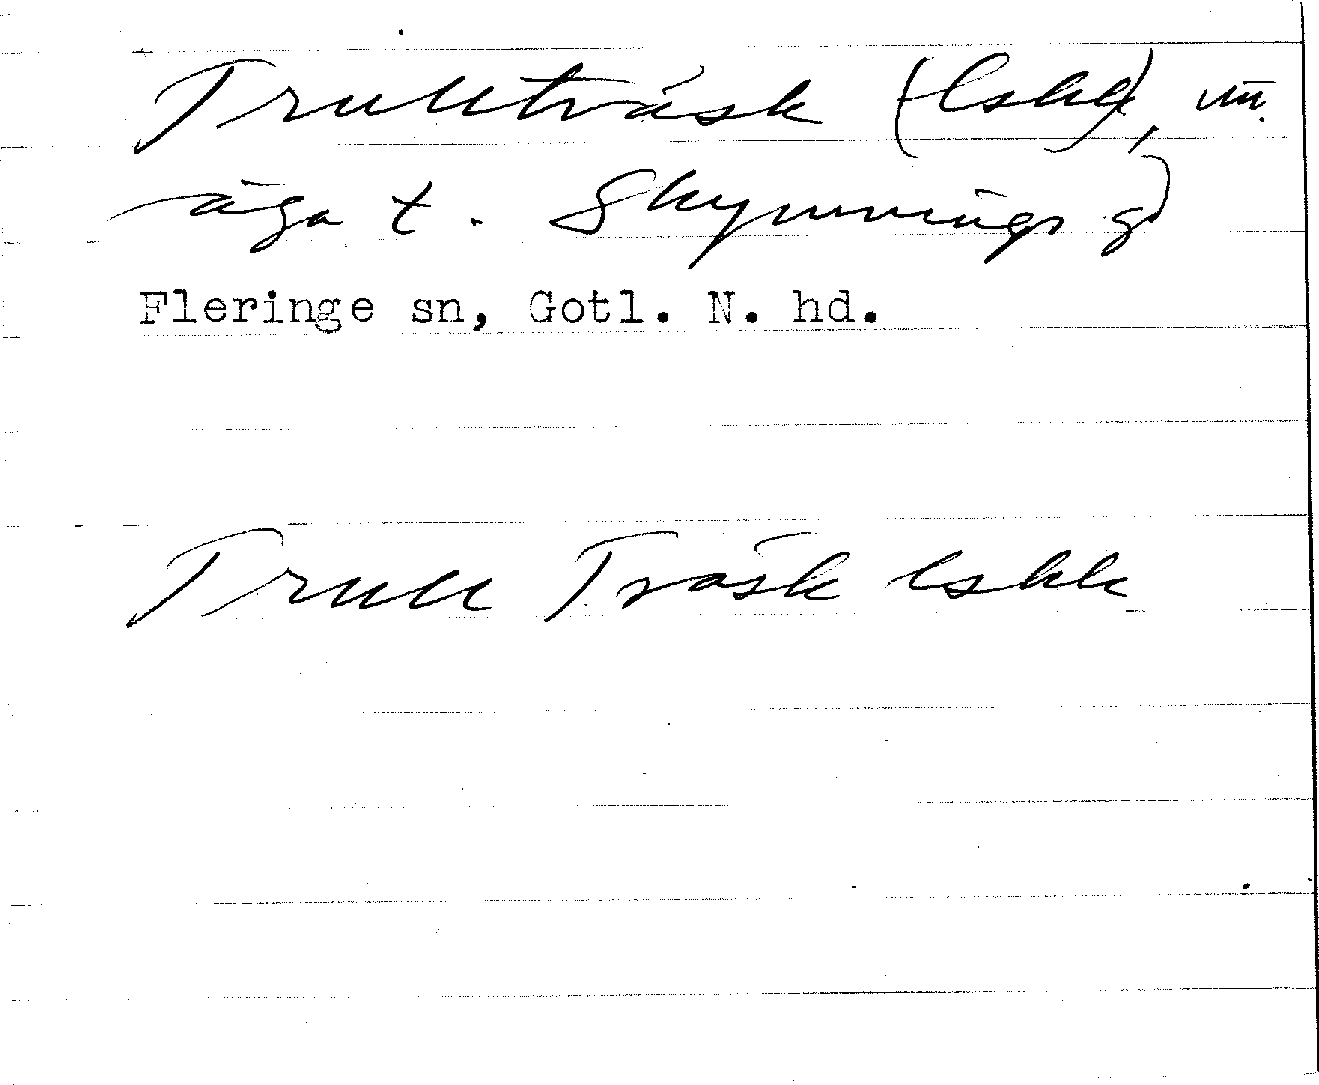 Trullträsk (lskg), in.
äga t. Skymnings gd
Fleringe sn, Gotl. N. hd.
Trull Träsk lskk